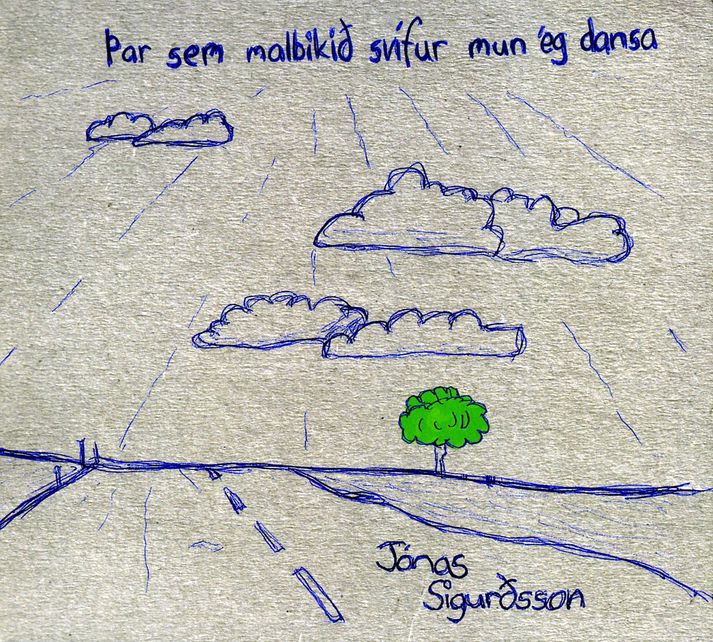 Þar sem malbikið svífur mun ég dansa
Jónas
Sigurðsson